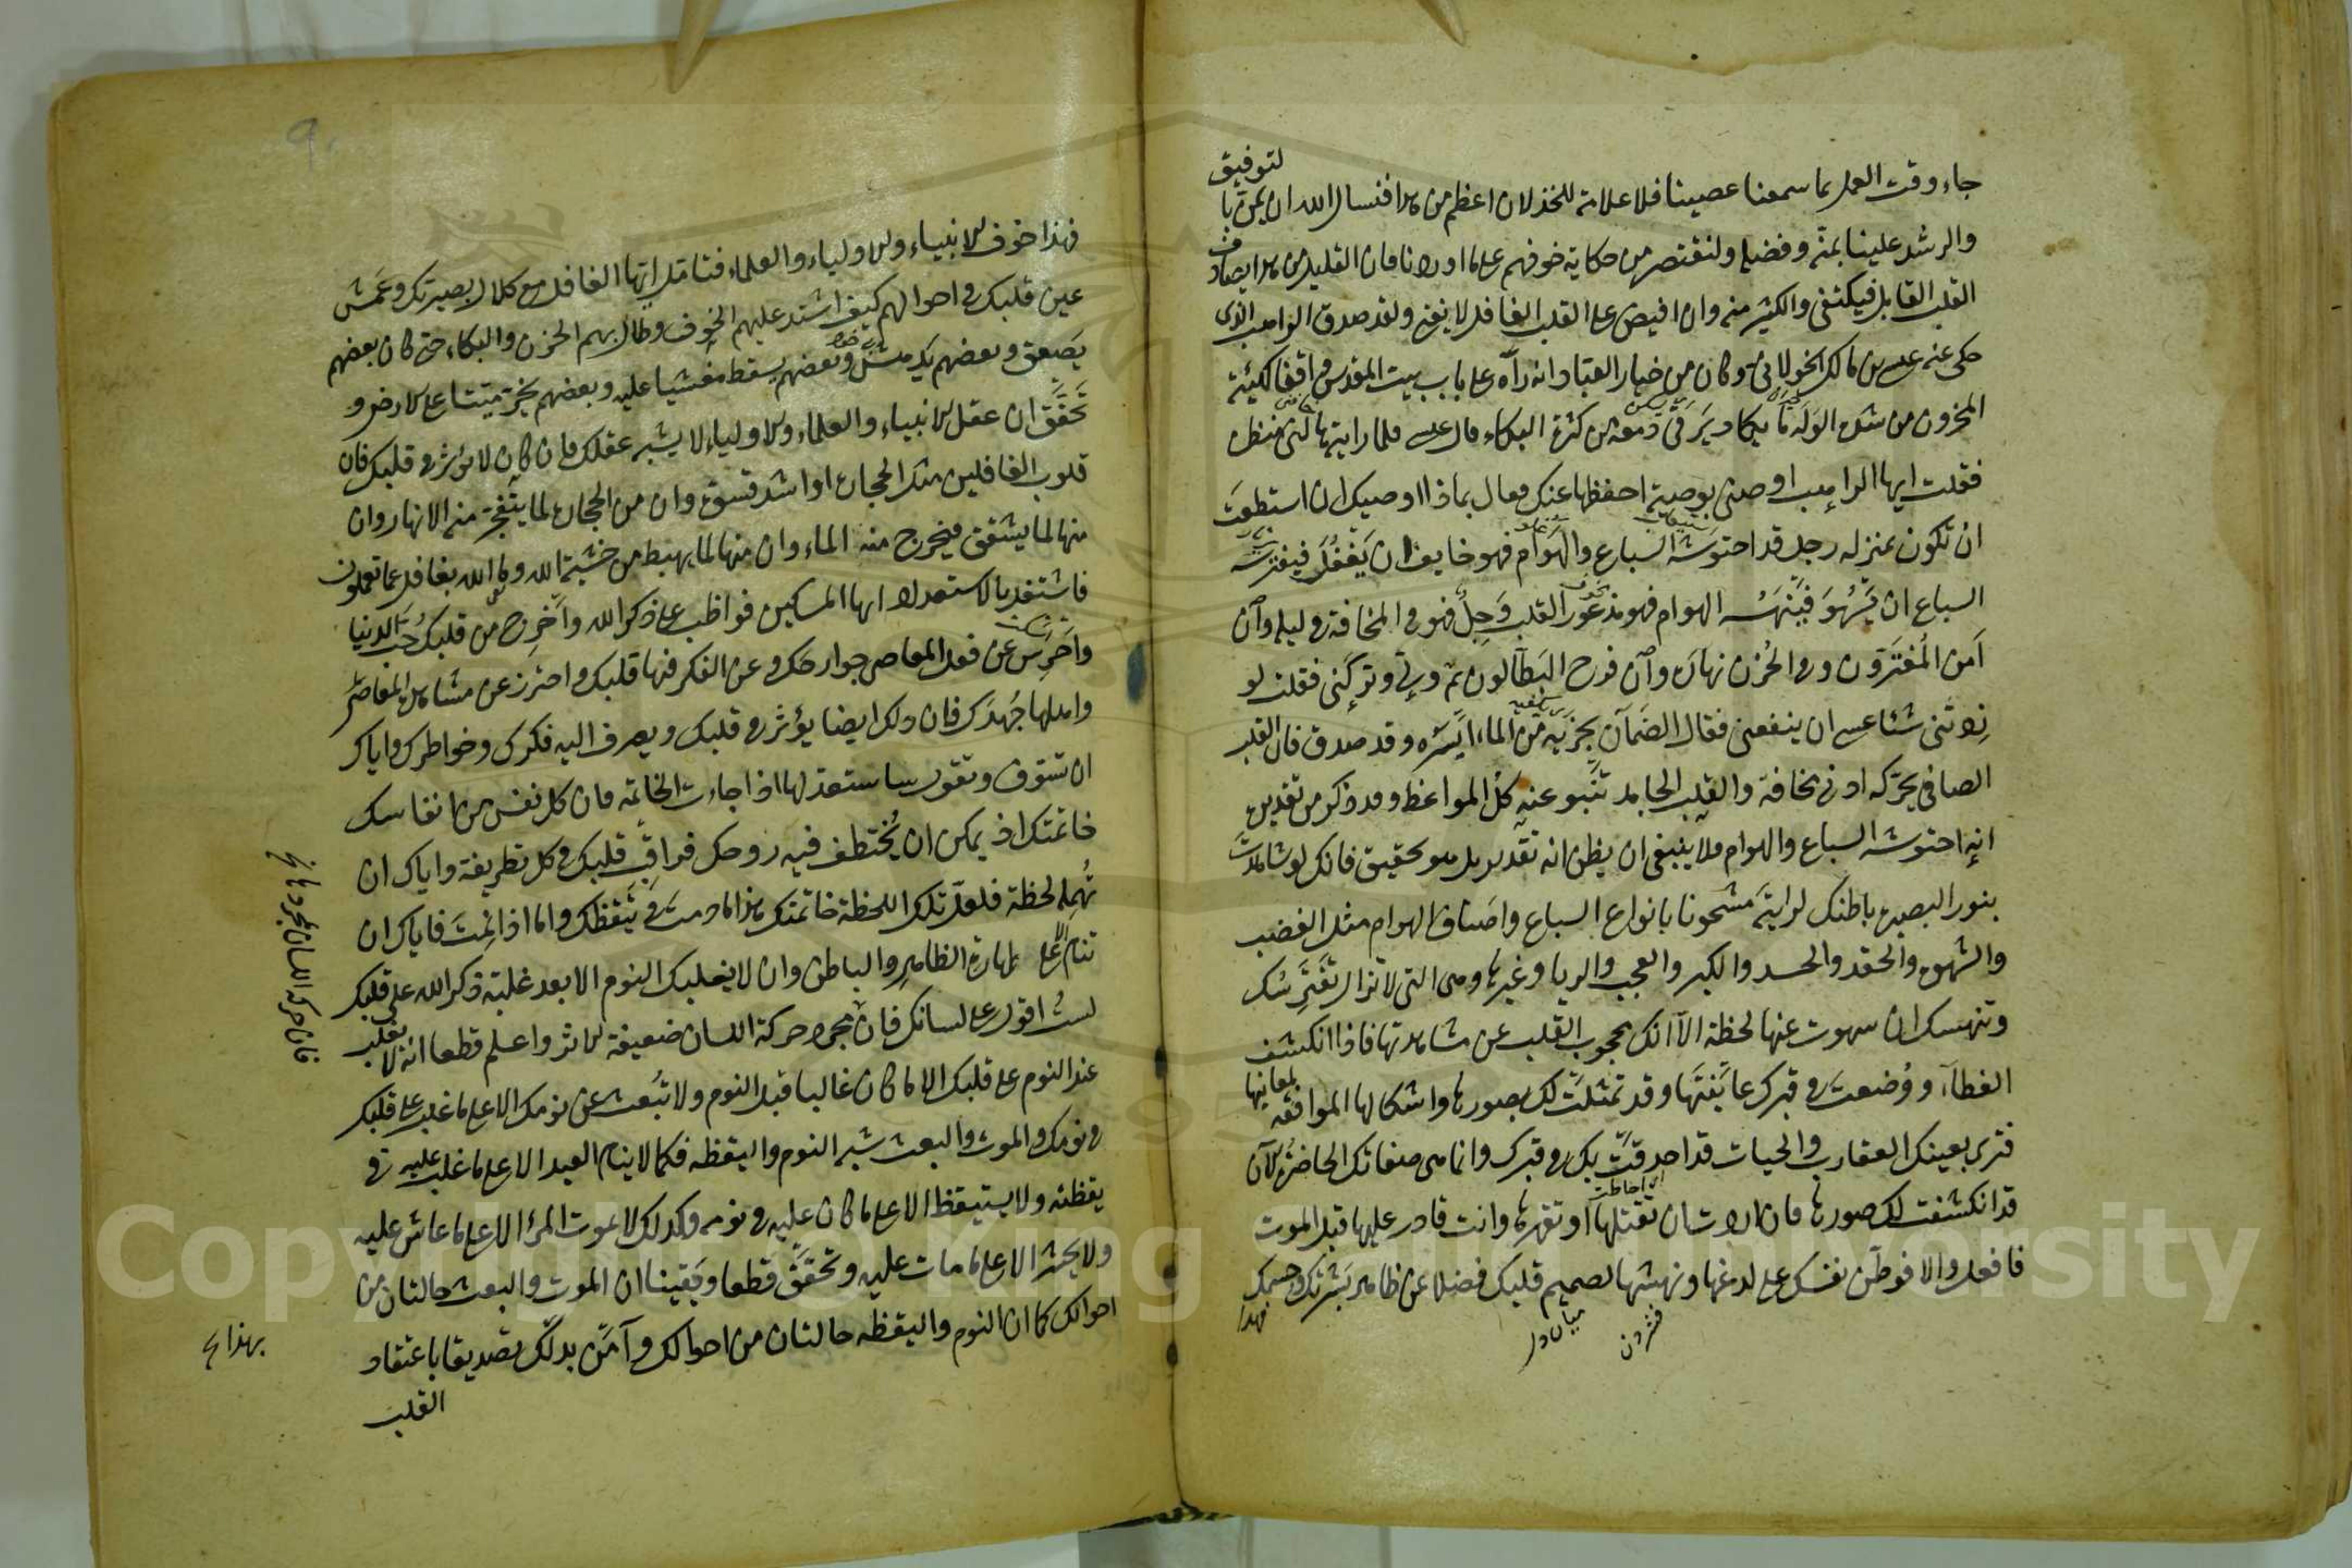 لتوفيق
جاء وقت العمل بما سمعنا عصينا فلا علامة للخذلان اعظم من هذا فنسال الله ان يمن با
والرشد علينا بمنه وفضله ولنقتصر من حكاية خوفهم على ما اوردنا فان القليل من هذا يصادف
القلب القابل فيكفى والكثير منه وان افيض على القلب الغافل لا يغنى ولقد صدق الراهب الذى
حكى عنه عيسى بن مالك الخولانى وكان من خيار العباد انه رآه على باب بيت المقدس واقفا كهيئة
المحزون من شدة الوله ما يكاد يرقى دمعه من كثرة البكاء قال عيسى فلما رايته هالنى منظره
فقلت ايها الراهب اوصنى بوصية احفظها عنك فقال بماذا اوصيك ان استطعت
ان تكون بمنزله رجل قد احتوشه السباع والهوام فهو خايف ان يغفل فيفترسه
السباع ان يسهو فينهسه الهوام فهو مذعور القلب وجل فهو فى المخافة فى ليله وان
امن المغترون وفى الحزن نهاره وان فرح البطالون ثم ولى وتركنى فقلت لو
زدتنى شئا عسى ان ينفعنى فقال الضمآن يجزيه من الماء ايسره وقد صدق فان القلب
الصافى يحركه ادنى مخافة والقلب الجامد تنبو عنه كل المواعظ وقد ذكر من تقديره
انه احتوشه السباع والهوام فلا ينبغى ان يظن انه تقدير بل هو تحقيق فانك لو شاهدت
بنور البصيرة باطنك لرايته مشحونا بانواع السباع واصناف الهوام مثل الغضب
والشهوة والحقد والحسد والكبر والعجب والريا وغيرها وهى التى لا تزال تفترسك
وتنهسك ان سهوت عنها لحظة الا انك محجوب القلب عن مشاهدتها فاذا انكشف
الغطاء ووضعت فى قبرك عاينتها وقد تمثلت لك بصورها واشكالها الموافقه لمعانيها
فترى بعينك العقارب والحيات قد احدقت بك فى قبرك وانما هى صفاتك الحاضرة الآن
اى احاطت
قد انكشفت لك صورها فان اردت ان تقتلها او تقهرها وانت قادر عليها قبل الموت
فافعل والا فوطن نفسك على لدغها ونهشها لصميم قلبك فضلا عن ظاهر بشرتك وجسمك
فهذا
فهذا خوف الانبياء والاولياء والعلماء فتامل ايها الغافل مع كلال بصيرتك وعمش
عين قلبك فى احوالهم كيف اشتد عليهم الخوف وطال بهم الحزن والبكاء حتى كان بعضهم
يصعق وبعضهم يدهش وبعضهم يسقط مغشيا عليه وبعضهم يخر ميتا على الارض و
تحقق ان عقل الانبياء والعلماء والاولياء لا يشبه عقلك فان كان لا يؤثر فى قلبك فان
قلوب الغافلين مثل الحجارة او اشد قسوة وان من الحجارة لما يتفجر منه الانهار وان
منها لما يشقق فيخرج منه الماء وان منها لما يهبط من خشية الله وما الله بغافل عما تعملون
فاشتغل بالاستعداد ايها المسكين فواظب على ذكر الله واخرج من قلبك حب الدنيا
واحرس عن فعل المعاصى جوارحك وعن الفكر فيها قلبك واحترز عن مشاهدة المعاصى
واهلها جهدك فان ذلك ايضا يؤثر فى قلبك ويصرف اليه فكرك وخواطرك واياك
ان تسوف وتقول ساستعد لها اذا جاءت الخاتمة فان كل نفس من انفاسك
خاتمتك اذ يمكن ان يختطف فيه روحك فراقب قلبك فى كل تطريفة واياك ان
تهمله لحظة فلعل تلك اللحظة خاتمتك هذا ما دمت فى يقظتك واما اذا نمت فاياك ان
تنام الا على طهارة الظاهر والباطن وان لا يغلبك النوم الا بعد غلبة ذكر الله على قلبك
لست اقول على لسانك فان مجرد حركة اللسان ضعيفة الاثر واعلم قطعا انه لا يغلب
عند النوم على قلبك الا ما كان غالبا قبل النوم ولا تبعث عن نومك الا على ما غلب على قلبك
فى نومك والموت والبعث شبه النوم واليقظه فكما لا ينام العبد الا على ما غلب عليه فى
يقظته ولا يستيقظ الا على ما كان عليه فى نومه وكذلك لا يموت المرأ الا على ما عاش عليه
ولا يحشر الا على ما مات عليه وتحقق قطعا ويقينا ان الموت والبعث حالتان من
احوالك كما ان النوم واليقظه حالتان من احوالك وآمن بذلك تصديقا باعتقاد
القلب
فان حركة اللسان بمجردها
بهذا
٩٠